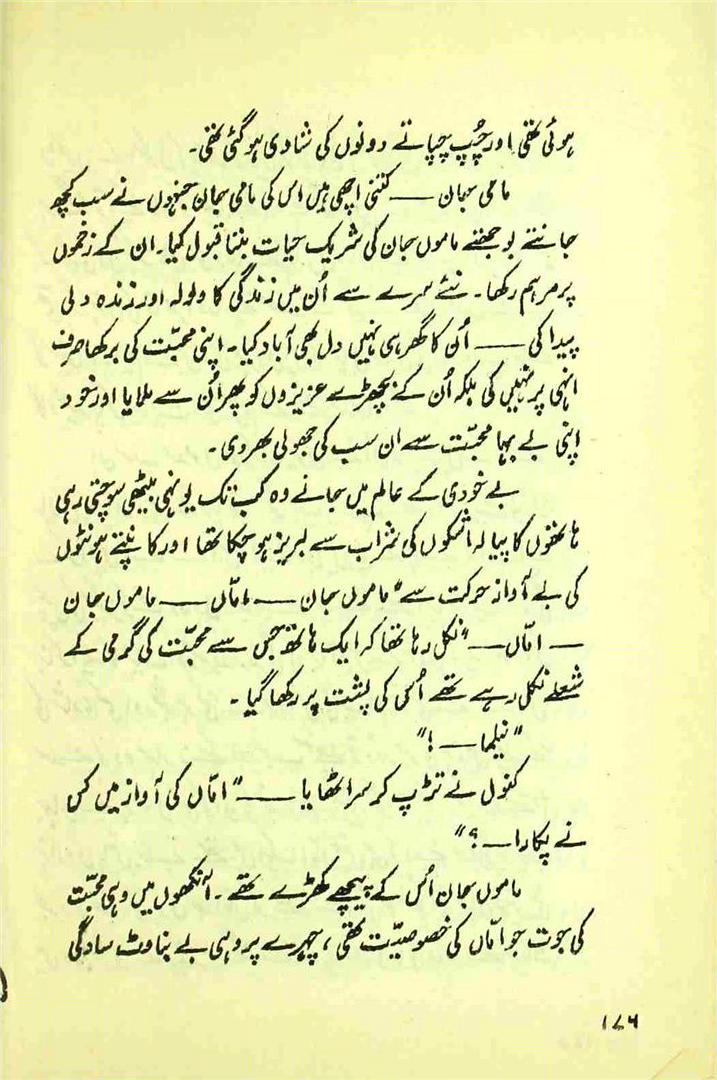 ہوئی تھی اور چُپ چپاتے دونوں کی شادی ہو گئی تھی۔
مامی جان —— کتنی اچھی ہیں اس کی مامی جان جنہوں نے سب کچھ
جانتے بوجھتے ماموں جان کی شریک حیات بننا قبول کیا۔ ان کے زخموں
پر مرہم رکھا۔ نئے سرے سے اُن میں زندگی کا ولولہ اور زندہ دلی
پیدا کی —— اُن کا گھر ہی نہیں دل بھی آباد کیا۔ اپنی محبّت کی برکھا صرف
انہی پر نہیں کی بلکہ اُن کے بچھڑے عزیزوں کو پھر اُن سے ملایا اور خود
اپنی بے بہا محبّت سے ان سب کی جھولی بھر دی۔
بے خودی کے عالم میں جانے وہ کب تک یونہی بیٹھی سوچتی رہی
ہاتھوں کا پیالہ اشکوں کی شراب سے لبریز ہو چکا تھا اور کانپتے ہونٹوں
کی بے آواز حرکت سے "ماموں جان — امّاں — ماموں جان
— امّاں —" نکل رہا تھا کہ ایک ہاتھ جس سے محبّت کی گرمی کے
شعلے نکل رہے تھے اُس کی پشت پر رکھا گیا۔
"نیلما — !"
کنول نے تڑپ کر سر اٹھایا —— "امّاں کی آواز میں کس
نے پکارا — ؟"
ماموں جان اُس کے پیچھے کھڑے تھے۔ آنکھوں میں وہی محبّت
کی جوت جو امّاں کی خصوصیّت تھی، چہرے پر وہی بے بناوٹ سادگی
۱۷۶